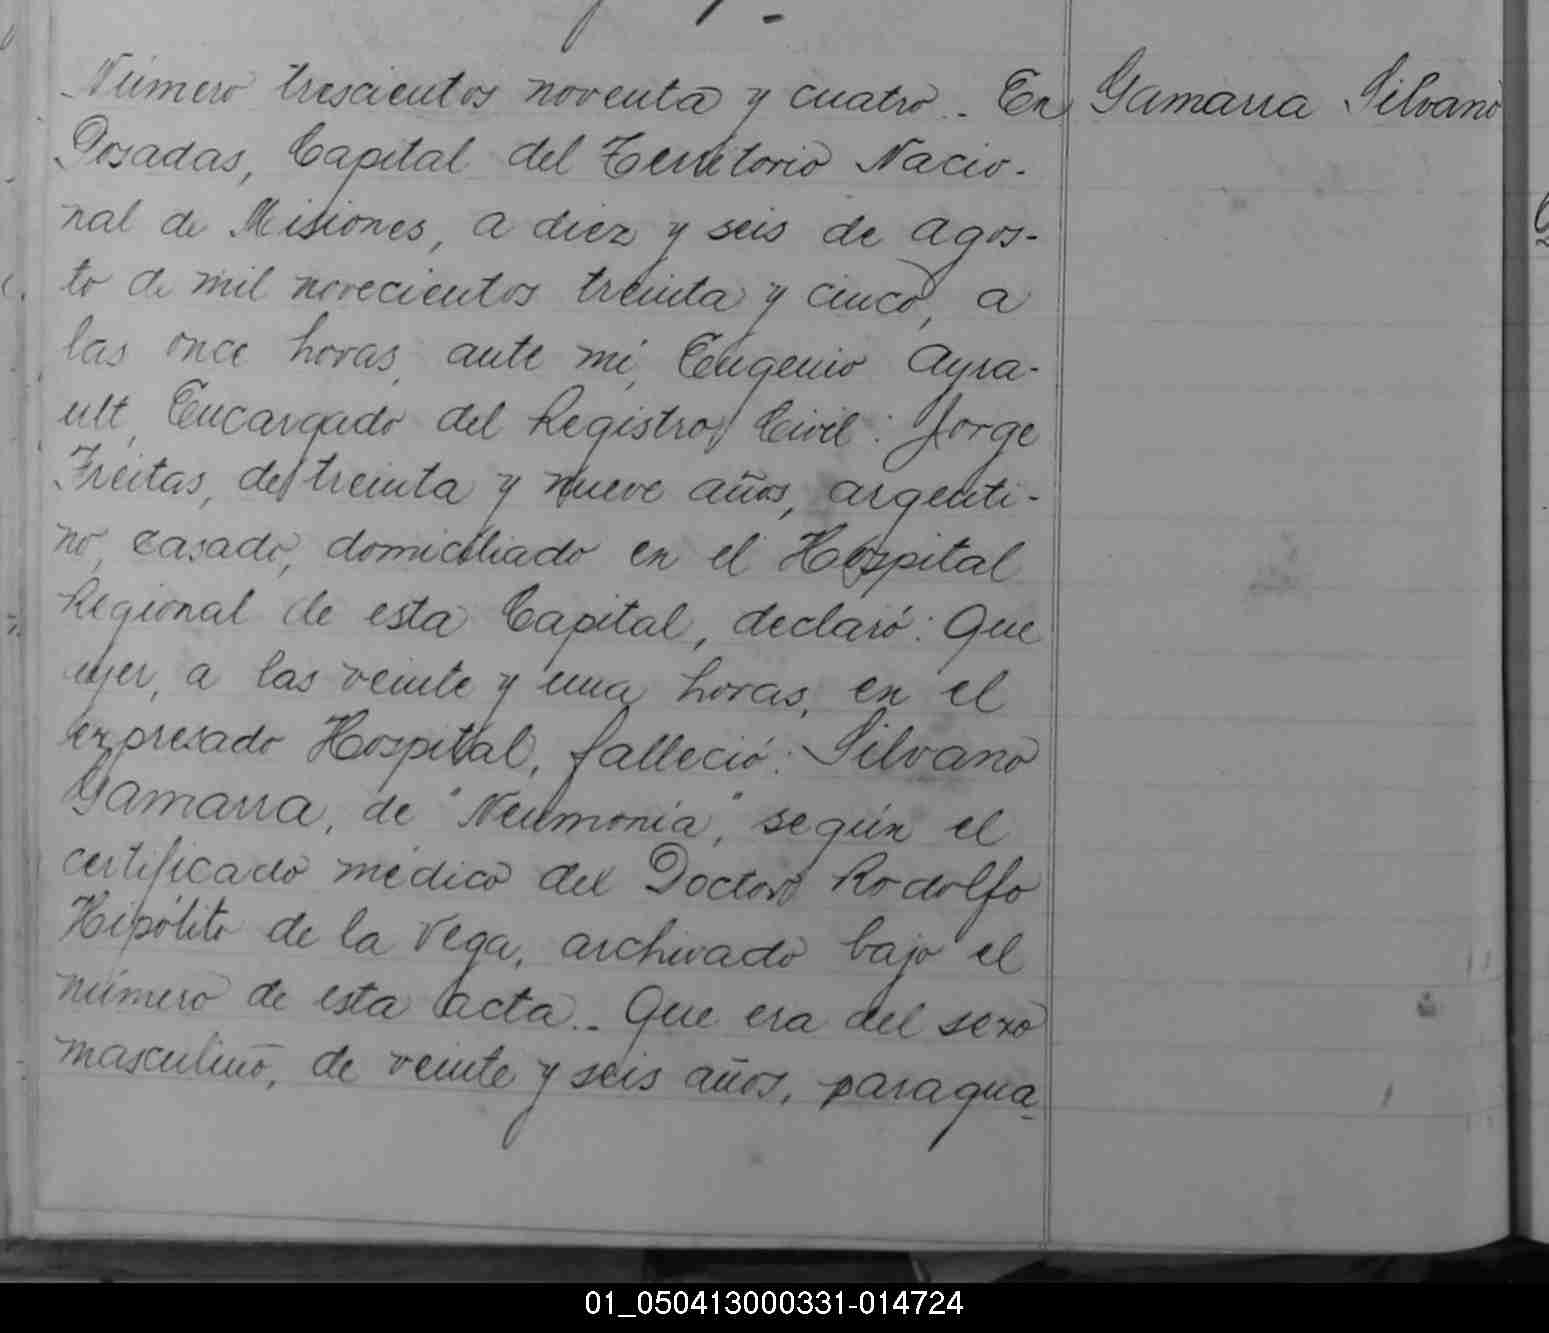 Número trescientos noventa y cuatro.. En
Gamarra Silvano
Posadas, Capital del Territorio Nacio-
nal de Misiones, a diez y seis de agos-
to de mil novecientos treinta y cinco, a
las once horas, ante mí, Eugenio Ayra-
ult, Encargado del Registro Civil: Jorge
Freitas, de treinta y nueve años, argenti-
no, casado, domiciliado en el Hospital
Regional de esta Capital, declaró: Que
ayer, a las veinte y una horas, en el
expresado Hospital, falleció: Silvano
Gamarra, de "Neumonía", según el
certificado médico del Doctor Rodolfo
Hipólito de la Vega, archivado bajo el
número de esta acta.. Que era del sexo
masculino, de veinte y seis años, paragua-
01_050413000331-014724